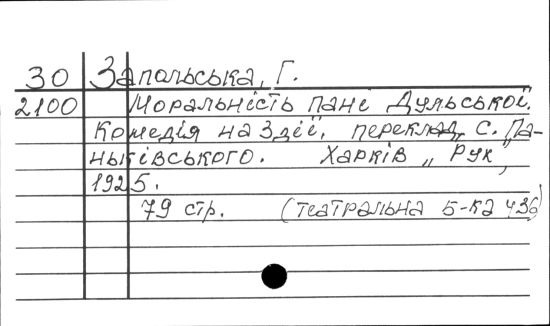 30 Запольська, Г.
2100 Моральність пані Дульської.
Комедія на 3 дії, переклад С. Па-
ньківського. Харків „Рух”,
1925.
79 стр. (театральна б-ка ч36)